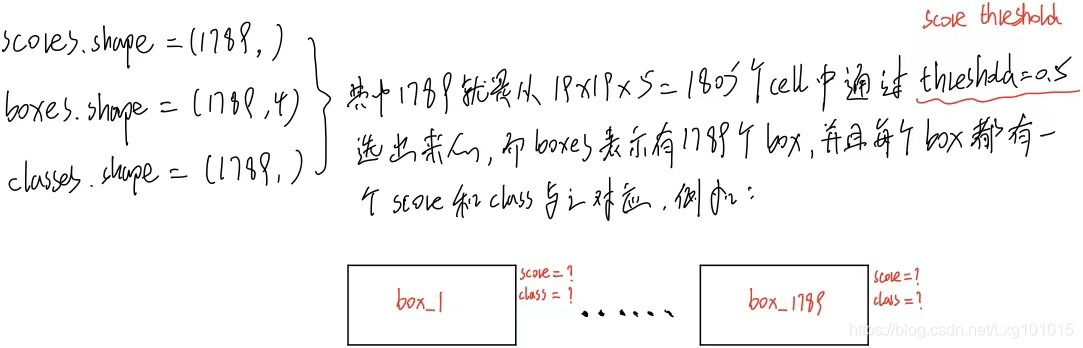 score threshold
scores.shape = (1789, )
boxes.shape = (1789, 4)
classes.shape = (1789, )
其中1789就是从19x19x5=1805个cell中通过threshold=0.5
选出来的,而boxes表示有1789个box,并且每个box都有一
个score和class与之对应.例如:
box_1
score=?
class=?
......
box_1789
score=?
class=?
https://blog.csdn.net/Lxg101015